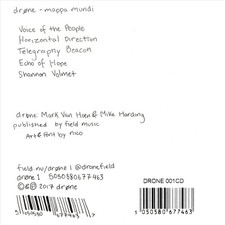 drøne - mappa mundi
Voice of the People
Horizontal Direction
Telegraphy Beacon
Echo of Hope
Shannon Volmet
drøne: Mark Van Hoen & Mike Harding
published by field music
Art & Font by nico
field.nu/drøne1 @dronefield
drøne 1 5050580677463
©℗ 2017 drøne
DRONE 001CD
5 050580 677463
5 050580 677463